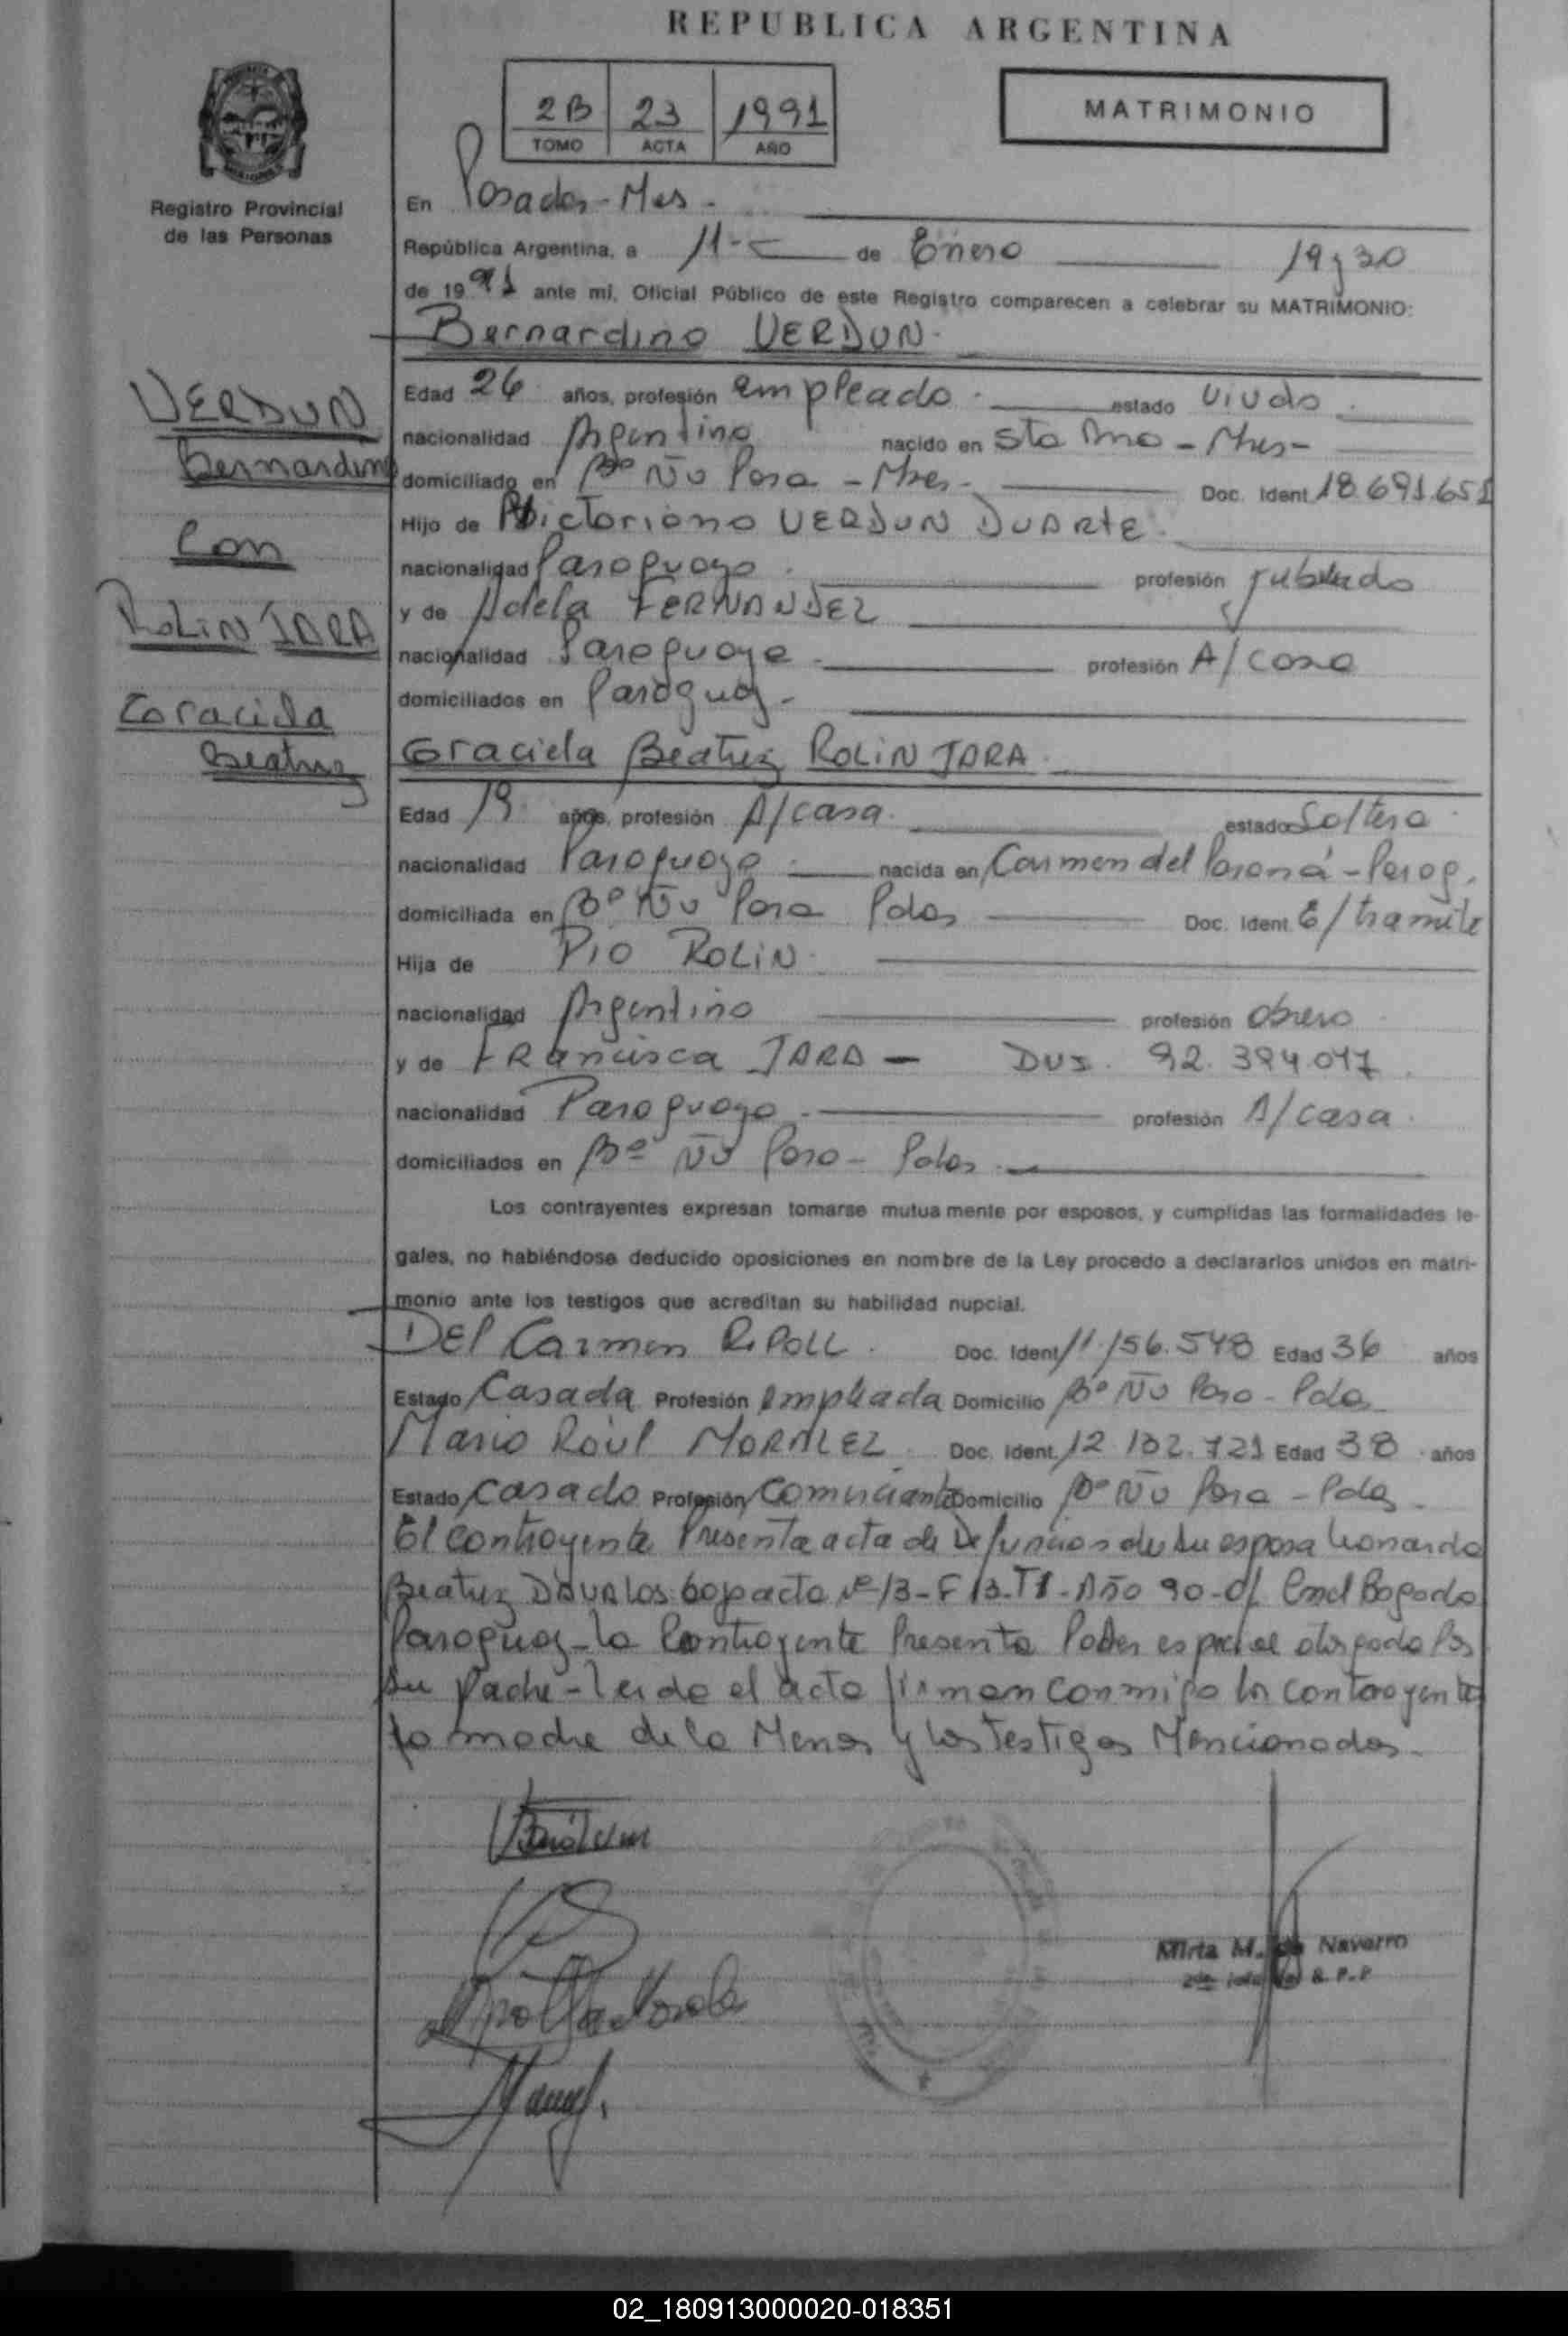 REPUBLICA ARGENTINA
2B 23 1991
TOMO ACTA AÑO
MATRIMONIO
Registro Provincial
de las Personas
En Posadas - Mnes -
República Argentina, a 11 - de Enero 19 y 30
de 1991 ante mi, Oficial Público de este Registro comparecen a celebrar su MATRIMONIO:
Bernardino VERDUN.
VERDUN
Bernardino
Con
ROLIN JARA
Graciela
Beatriz
Edad 26 años, profesión empleado. estado Viudo.
nacionalidad Argentino nacido en Sta Ana - Mnes -
domiciliado en Bº Ñu Pora - Mnes - Doc. Ident 18.691.651
Hijo de Victoriano VERDUN DUARTE.
nacionalidad Paraguayo. profesión Jubilado
y de Adela FERNANDEZ
nacionalidad Paraguaya. profesión A/casa
domiciliados en Paraguay -
Graciela Beatriz ROLIN JARA.
Edad 19 años, profesión A/casa. estado Soltera
nacionalidad Paraguaya. nacida en Carmen del Paraná - Parag.
domiciliada en Bº Ñu Pora Pdas Doc. Ident. E/tramite
Hija de PIO ROLIN.
nacionalidad Argentino profesión obrero
y de FRancisca JARA - 92.394.047
nacionalidad Paraguaya. profesión A/casa.
domiciliados en Bº Ñu Pora - Pdas.
Los contrayentes expresan tomarse mutuamente por esposos, y cumplidas las formalidades le-
gales, no habiéndose deducido oposiciones en nombre de la Ley procedo a declararlos unidos en matri-
monio ante los testigos que acreditan su habilidad nupcial.
DEl Carmen RIPOLL. Doc. Ident 11.156.548 Edad 36 años
Estado Casada Profesión empleada Domicilio Bº Ñu Pora - Pdas
Mario Raúl MORALEZ. Doc. Ident. 12.132.721 Edad 38 años
Estado Casado Profesión Comerciante Domicilio Bº Ñu Pora - Pdas.
El contrayente Presenta acta de Defuncion de su esposa Leonarda
Beatriz DAVALOS acta Nº 13 - F 13 - T1 - Año 90 - Of. Cnel Bogado
Paraguay - la Contrayente Presenta Poder especial otorgado por
su padre - Leida el acta firman conmigo los contrayentes
la madre de la Menor y los testigos Mencionados -
Mirta M. de Navarro
R.P.P
02_180913000020-018351